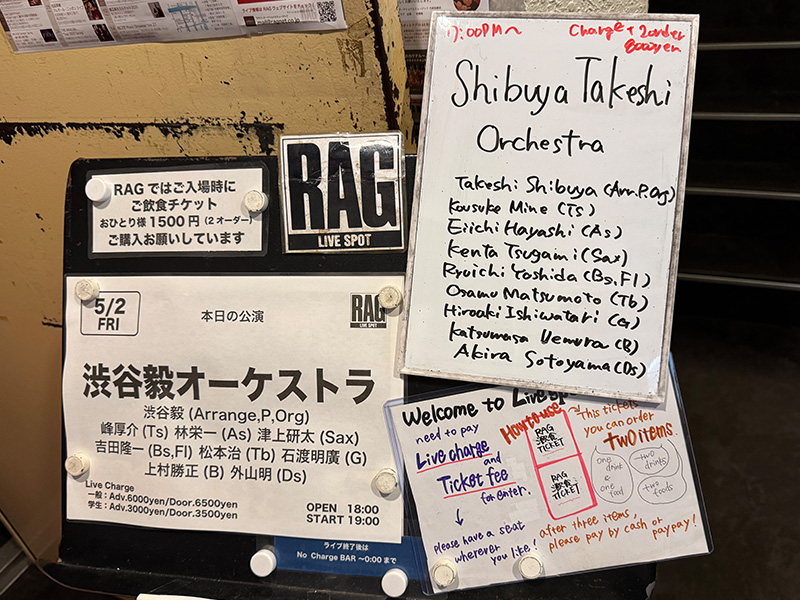 RAG ではご入場時に
ご飲食チケット
おひとり様 1500円 (2オーダー)
ご購入お願いしています
RAG
LIVE SPOT
5/2
FRI
本日の公演
RAG
LIVE SPOT
渋谷毅オーケストラ
渋谷毅 (Arrange,P,Org)
峰厚介 (Ts) 林栄一 (As) 津上研太 (Sax)
吉田隆一 (Bs,Fl) 松本治 (Tb) 石渡明廣 (G)
上村勝正 (B) 外山明 (Ds)
Live Charge
一般：Adv.6000yen/Door.6500yen
学生：Adv.3000yen/Door.3500yen
OPEN 18:00
START 19:00
ライブ終了後は
No Charge BAR 〜0:00まで
7:00PM〜
Charge + 2order
8000yen
Shibuya Takeshi
Orchestra
Takeshi Shibuya (Arr.P,Org)
Kousuke Mine (Ts)
Eiichi Hayashi (As)
Kenta Tsugami (Sax)
Ryuichi Yoshida (Bs,Fl)
Osamu Matsumoto (Tb)
Hiroaki Ishiwatari (G)
Katsumasa Uemura (B)
Akira Sotoyama (Ds)
Welcome to Live
need to pay
Live charge
and
Ticket fee
for enter.
↓
please have a seat
wherever
you like!
How to use
RAG
TICKET
RAG
TICKET
This tickets
you can order
two items.
one
drink
&
one
food
two
drinks
two
foods
after three items,
please pay by cash or
paypay!